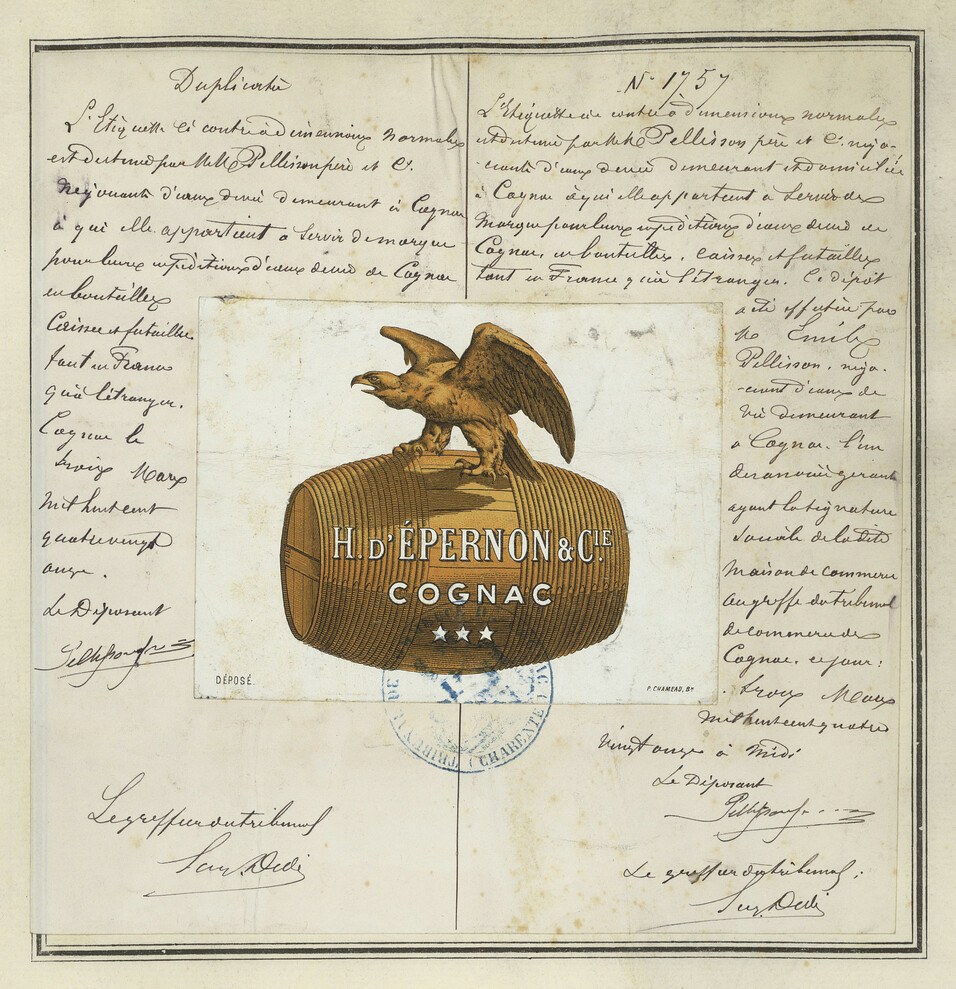 Duplicata
L'Etiquette ci contre à dimensions normales
est destiné par MM Pellisson père et Cie
Négociants d'eaux de vie demeurant à Cognac
à qui elle appartient a servir de marque
pour leurs expéditions d'eaux de vie de Cognac
en bouteilles
Caisses et futailles
tant en France
qu'à l'étranger.
Cognac le
trois Mars
mil huit cent
quatre vingt
onze.
Le Déposant
Le greffier du tribunal
N° 1757
L'Etiquette ci contre à dimensions normales
est destiné par MM Pellisson père et Cie négo-
-ciants d'eaux de vie demeurant et domiciliés
à Cognac à qui elle appartient a servir de
Marque pour leurs expéditions d'eaux de vie de
Cognac, en bouteilles, caisses et futailles
tant en France qu'à l'étranger. Ce dépôt
a été effectué par
M. Emile
Pellisson, négo-
-ciant d'eaux de
vie demeurant
a Cognac, l'un
des associés gérants
ayant la signature
sociale de la dite
Maison de commerce
au greffe du tribunal
de commerce de
Cognac, ce jour:
trois Mars
mil huit cent quatre
vingt onze à midi
Le Déposant
Le greffier du tribunal:
H. D'ÉPERNON & CIE
COGNAC
DÉPOSÉ.
P. CHAMEAU, BX
TRIBUNAL
(CHARENTE)